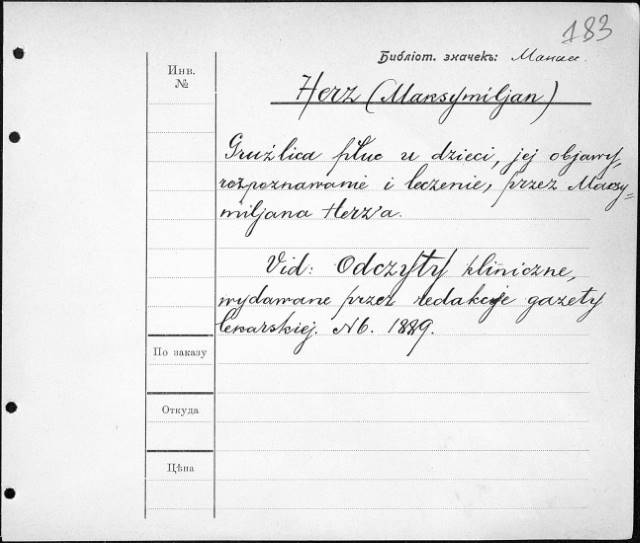 183
Библіот. значекъ:
Инв.
№
Herz (Maksymiljan)
Gruźlica płuc u dzieci, jej objawy,
rozpoznawanie i leczenie, przez Maksy=
miljana Herz'a.
Vid: Odczyty kliniczne,
wydawane przez redakcyje gazety
lekarskiej. N6. 1889.
По заказу
Откуда
Цѣна